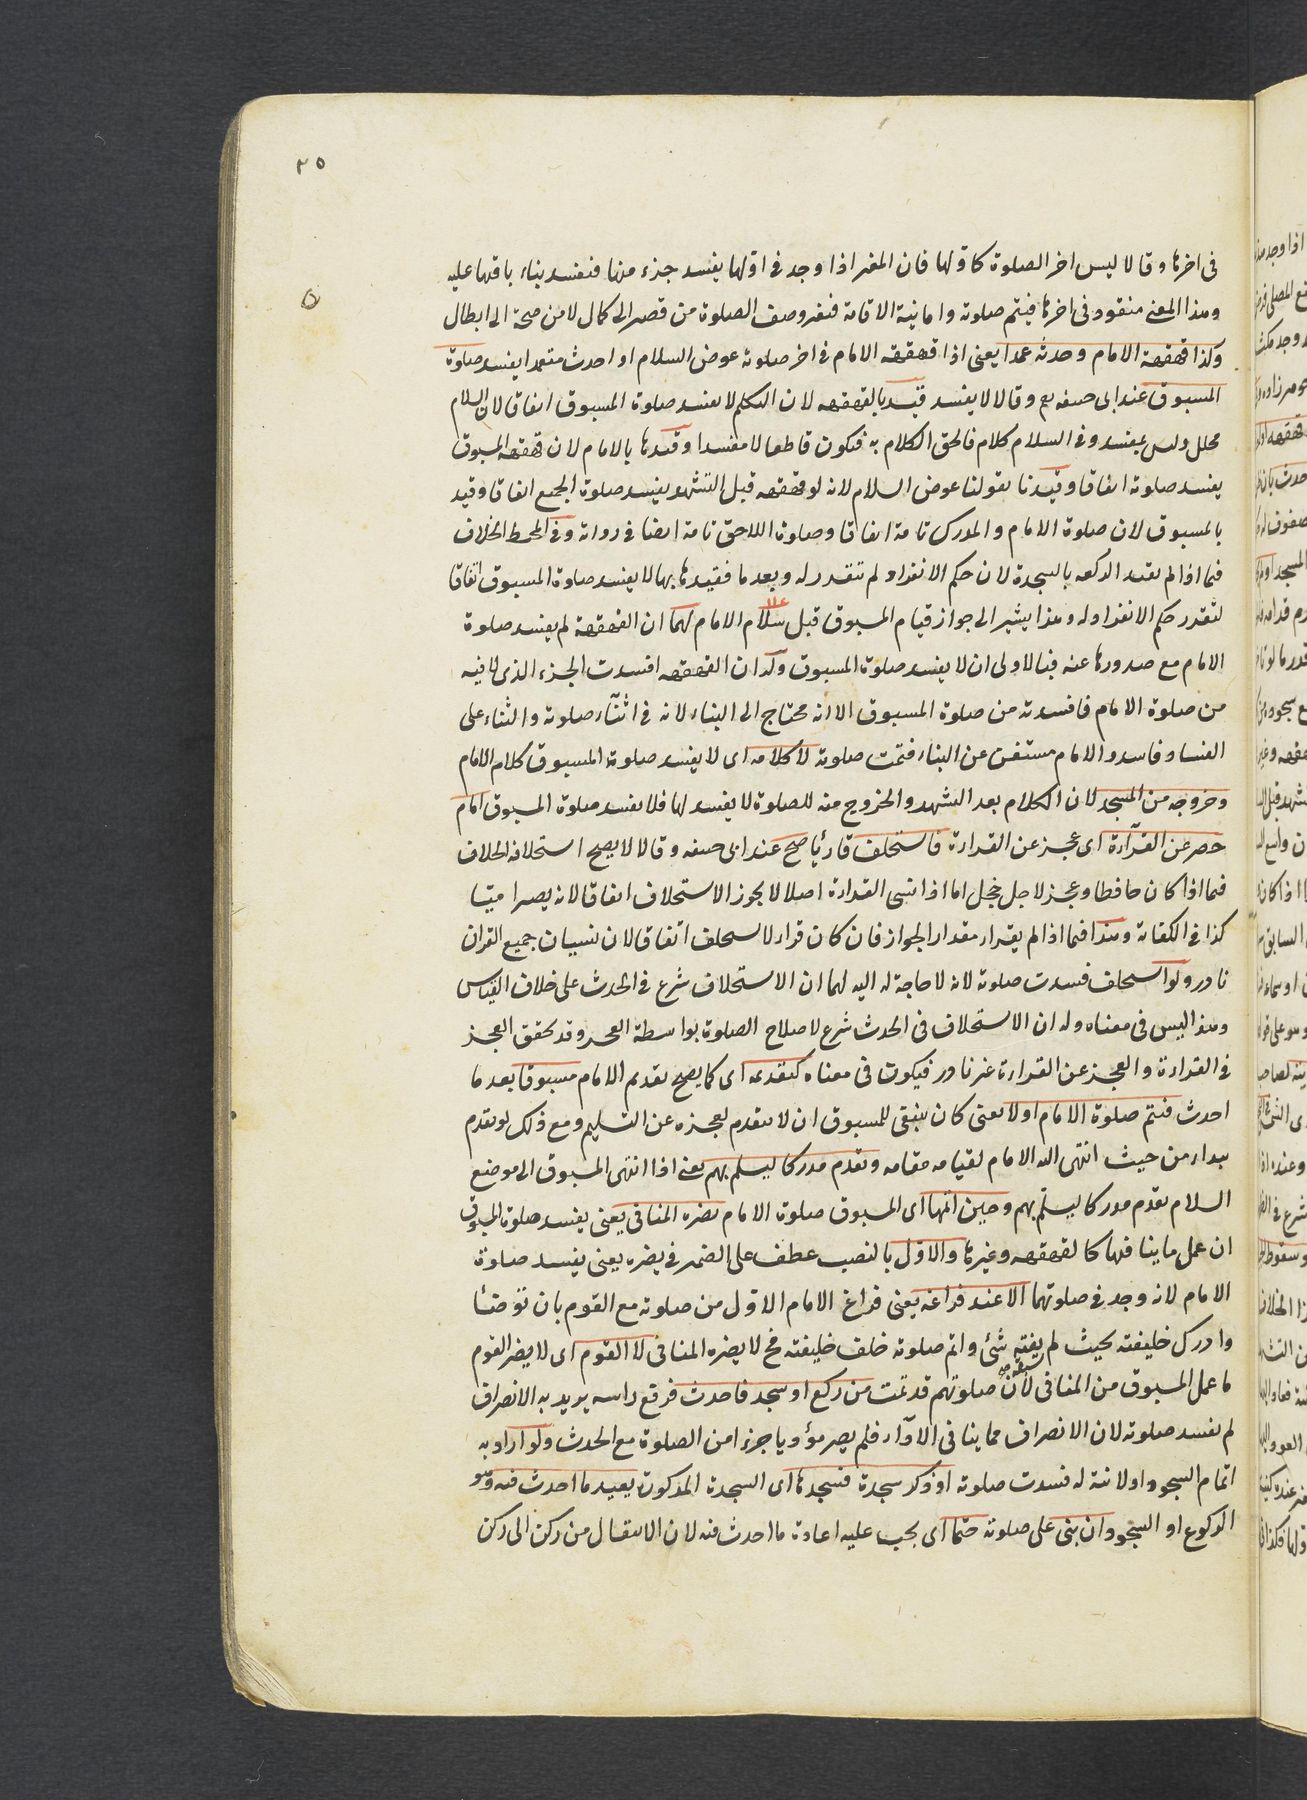 ٢٥
فى اخرها وقالا ليس اخر الصلوة كاولها فان المغير اذا وجد فى اولها يفسد جزء منها فيفسد بناء باقيها عليه
وهذا المعنى مفقود فى اخرها فيتم صلوته واما نية الاقامة فتغير وصف الصلوة من قصر الى كمال لا من صحة الى ابطال
وكذا قهقهة الامام وحدثه عمدا يعنى اذا قهقهه الامام فى اخر صلوته عوض السلام او احدث متعمدا يفسد صلوة
المسبوق عند ابى حنيفه رح وقالا لا يفسد قيد بالقهقهه لان التكلم لا يفسد صلوة المسبوق اتفاقا لان السلام
محلل وليس بمفسد وفى السلام كلام فالحق الكلام به فيكون قاطعا لا مفسدا وقيدها بالامام لان قهقهه المسبوق
يفسد صلوته اتفاقا وقيدنا بقولنا عوض السلام لانه لو قهقهه قبل التشهد يفسد صلوة الجميع اتفاقا وقيد
بالمسبوق لان صلوة الامام والمدرك تامة اتفاقا وصلوة اللاحق تامة ايضا فى رواية وفى المحيط الخلاف
فيما اذا لم يقيد الركعه بالسجدة لان حكم الانفراد لم تتقرر له وبعد ما قيدها بها لا يفسد صلوة المسبوق اتفاقا
لتقرر حكم الانفراد له وهذا يشير الى جواز قيام المسبوق قبل سلام الامام لهما ان القهقهة لم يفسد صلوة
الامام مع صدورها عنه فبالاولى ان لا يفسد صلوة المسبوق وله ان القهقهه افسدت الجزء الذى لاقيه
من صلوة الامام فافسدته من صلوة المسبوق الا انه محتاج الى البناء لانه فى اثناء صلوته والبناء على
الفساد فاسد والامام مستغن عن البناء فتمت صلوته لا كلامه اى لا يفسد صلوة المسبوق كلام الامام
وخروجه من المسجد لان الكلام بعد التشهد والخروج منه للصلوة لا يفسد لها فلا يفسد صلوة المسبوق امام
حصر عن القراءة اى عجز عن القراءة فاستخلف قارئا صح عند ابى حنيفه وقالا لا يصح استخلافه الخلاف
فيما اذا كان حافظا وعجز لاجل خجل اما اذا نسى القراءة اصلا لا يجوز الاستخلاف اتفاقا لانه يصير اميّا
كذا فى الكفاية وهذا فيما اذا لم يقرا مقدار الجواز فان كان قراء لا يستخلف اتفاقا لان نسيان جميع القران
نادر ولو استخلف فسدت صلوته لانه لا حاجة له اليه لهما ان الاستخلاف شرع فى الحدث على خلاف القياس
وهذا ليس فى معناه وله ان الاستخلاف فى الحدث شرع لاصلاح الصلوة بواسطة العجز وقد تحقق العجز
فى القراءة والعجز عن القراءة غير نادر فيكون فى معناه كتقديمه اى كما يصح تقديم الامام مسبوقا بعد ما
احدث فيتم صلوة الامام اولا يعنى كان ينبغى للمسبوق ان لا يتقدم لعجزه عن التسليم ومع ذلك لو تقدم
يبداء من حيث انتهى اليه الامام لقيامه مقامه وتقدم مدركا ليسلم بهم يعنى اذا انتهى المسبوق الى موضع
السلام يقدم مدركا ليسلم بهم وحين اتمها اى المسبوق صلوة الامام يضره المنافى يعنى يفسد صلوة المسبوق
ان عمل ما ينافيها كالقهقهه وغيرها والاول بالنصب عطف على الضمير فى يضره يعنى يفسد صلوة
الامام لانه وجد فى صلوتهما الا عند فراغه يعنى فراغ الامام الاول من صلوته مع القوم بان توضئا
وادرك خليفته بحيث لم يفته شئ واتم صلوته خلف خليفته فح لا يضره المنافى لا القوم اى لا يضر القوم
ما عمل المسبوق من المنافى لان صلوتهم قد تمت من ركع او سجد فاحدث فرفع راسه يريد به الانصراف
لم تفسد صلوته لان الانصراف مما ينافى الاداء فلم يصر مؤديا جزءا من الصلوة مع الحدث ولو اراد به
اتمام السجود او لا نية له فسدت صلوته او ذكر سجدة فسجدها اى السجدة المذكورة يعيد ما احدث فيه وهو
الركوع او السجود ان بنى على صلوته حتما اى يجب عليه اعادة ما احدث فيه لان الانتقال من ركن الى ركن